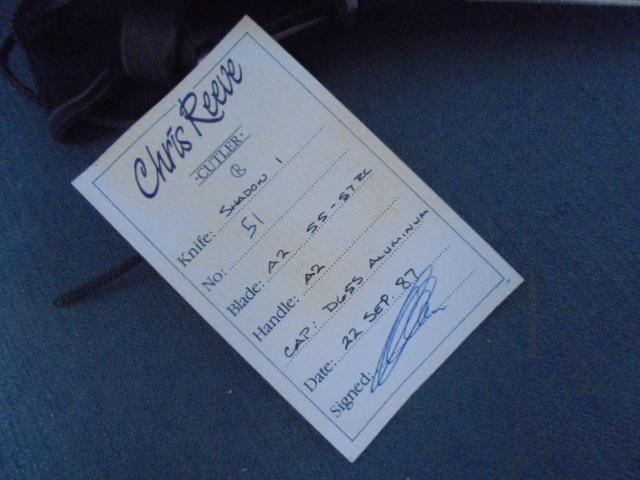 Chris Reeve
-CUTLER-
®
Knife: SHADOW 1
No: 51
Blade: A2 55-57 RC
Handle: A2
CAP: D6SS ALUMINUM
Date: 22 SEP. 87
Signed: